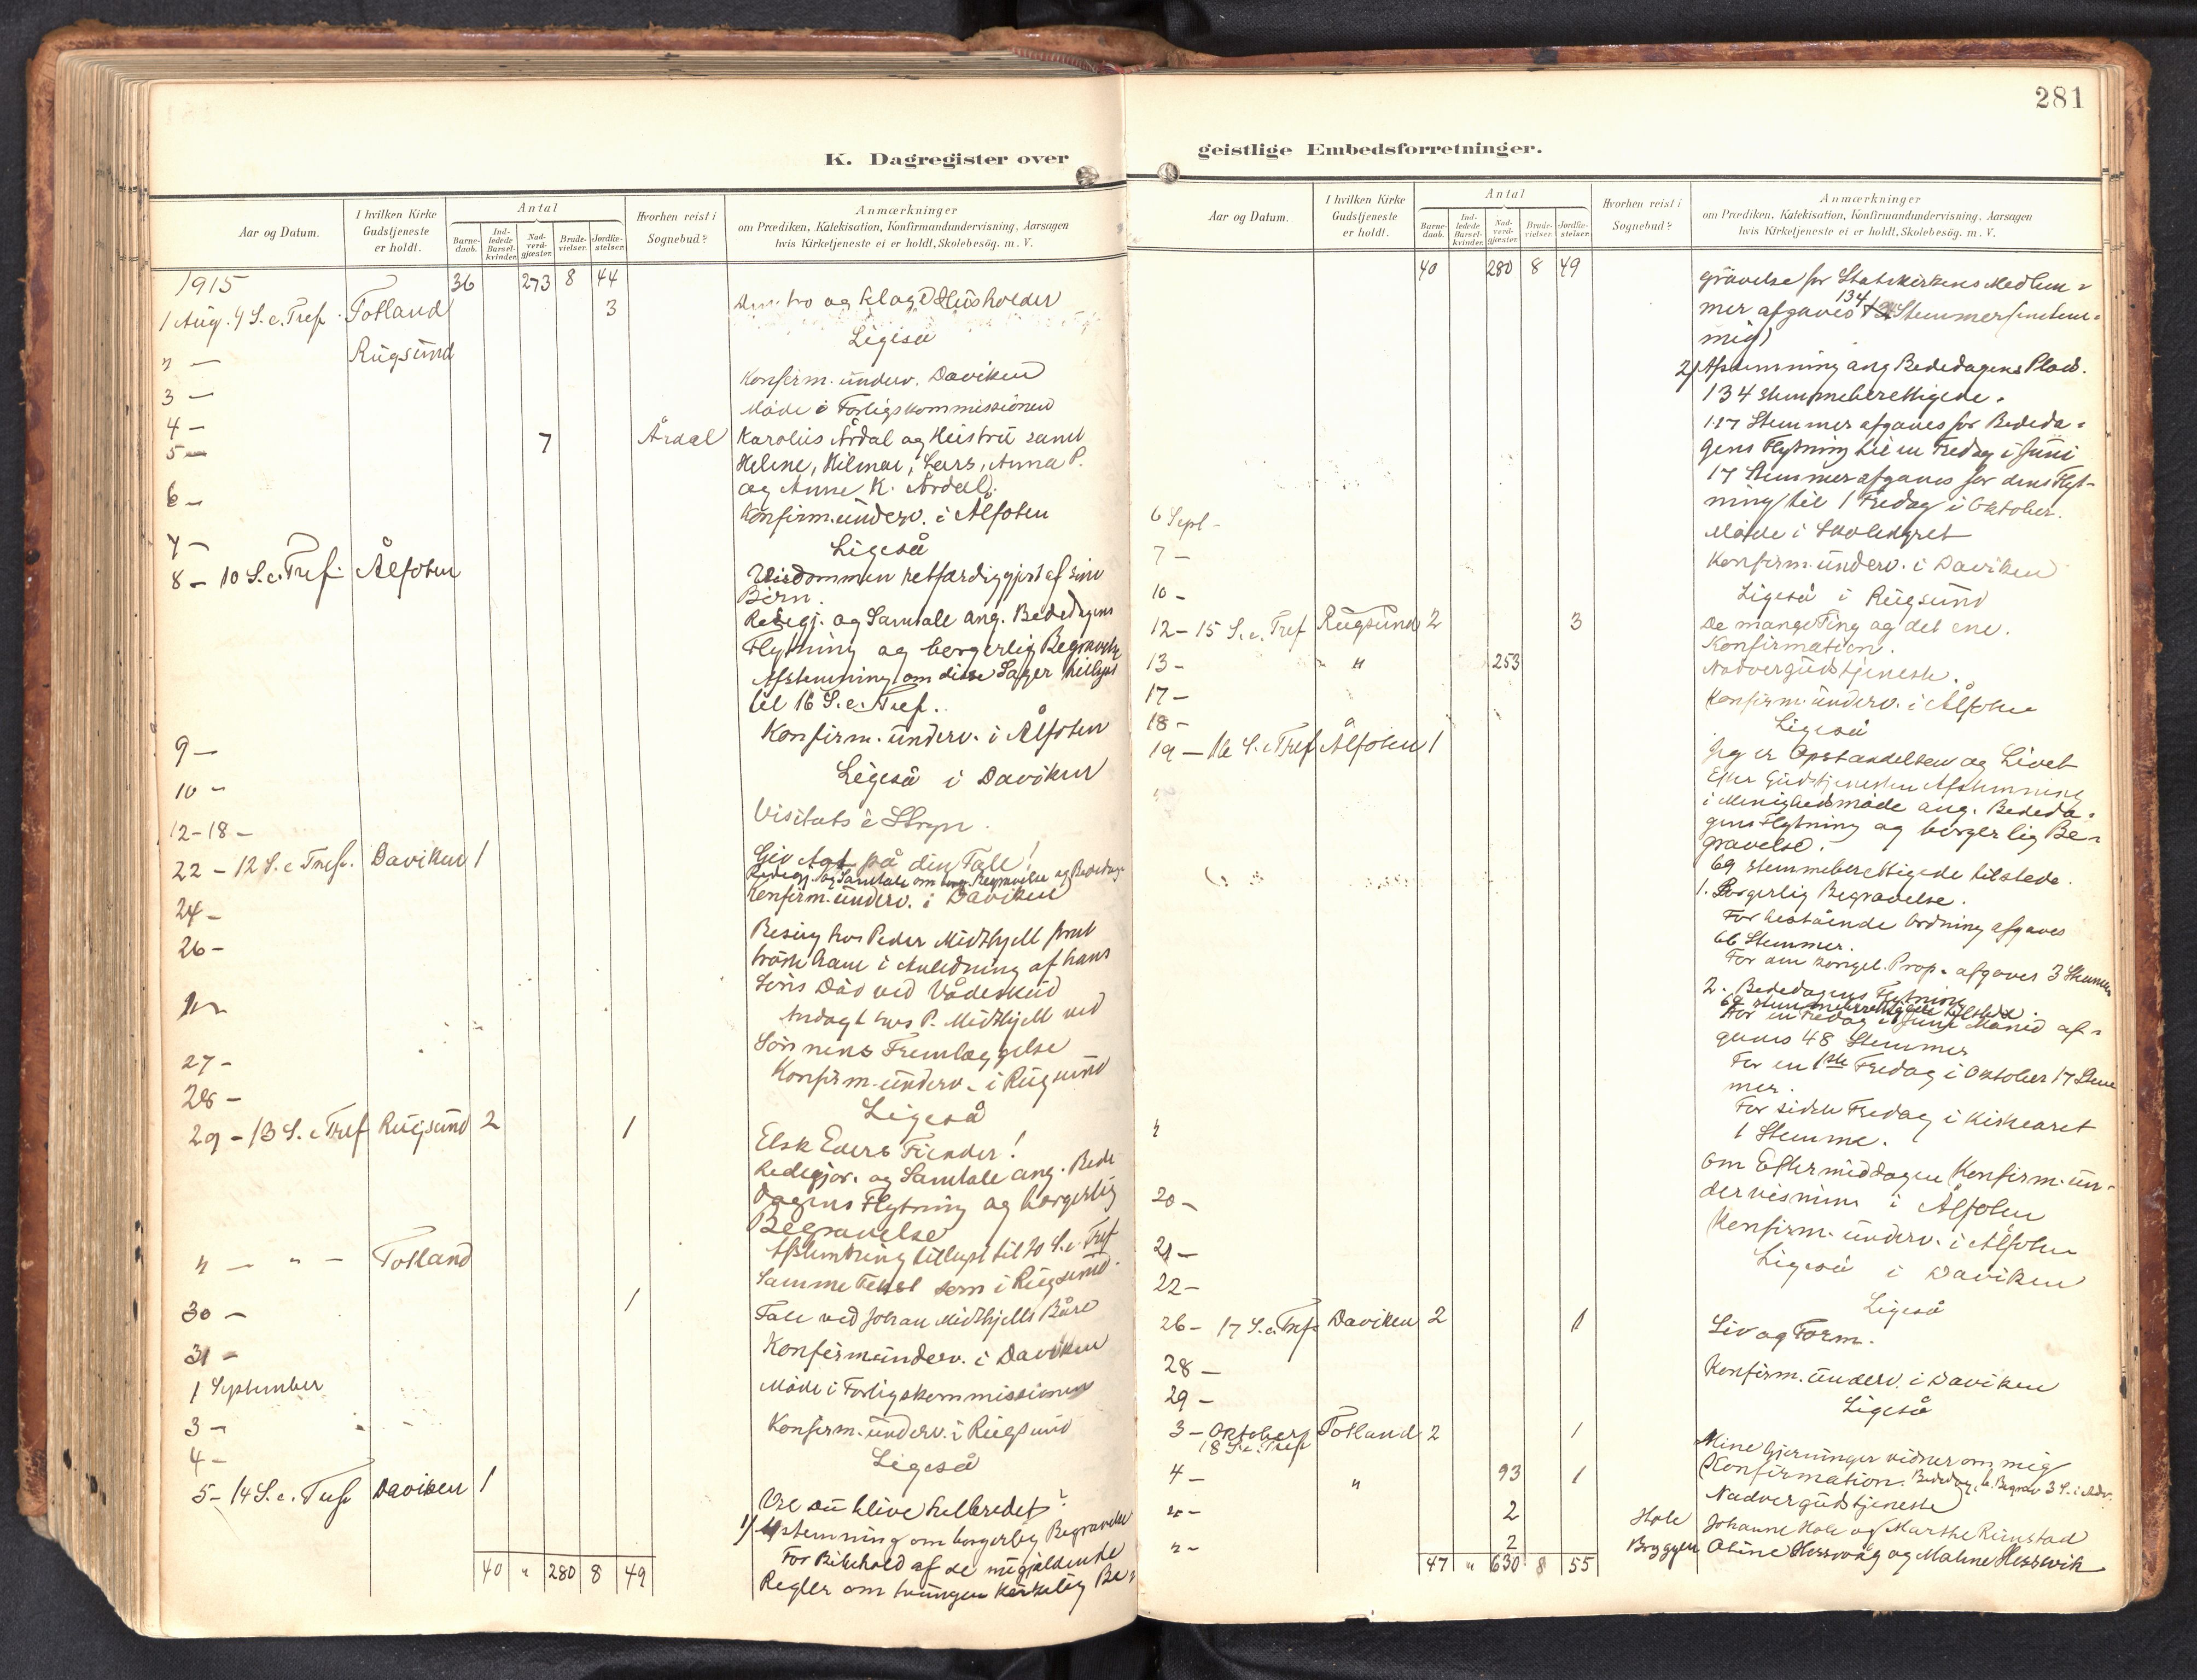 281
K. Dagregister over
Aar og Datum.
I hvilken Kirke Gudstjeneste er holdt.
Antal
Barnedaab.
Indledede Barselkvinder.
Nadverdgjæster.
Brudevielser.
Jordfæstelser.
Hvorhen reist i Sognebud?
Anmærkninger
om Prædiken, Katekisation, Konfirmandundervisning, Aarsagen
hvis Kirketjeneste ei er holdt, Skolebesög. m. V.
1915 36 273 8 44
1 Aug. 9 S. e. Tref. Totland 3 Den tro og kloge Husholder
" — Rugsund Ligeså
3 — Konfirm. underv. Daviken
4 — Møde i Forligskommissionen
5 — 7 Årdal Karolus Årdal og Hustru samt
Heline, Hilmar, Lars, Anna P.
og Anne K. Årdal.
6 — Konfirm. underv. i Ålfoten
7 — Ligeså
8 — 10 S. e. Tref. Ålfoten Visdommen retfærdiggjort af sine
Børn.
Redegj. og Samtale ang. Bededagens
Flytning og borgerlig Begravelse
Afstemning om disse Sager tillyst
til 16 S. e. Tref.
9 — Konfirm. underv. i Ålfoten
10 — Ligeså i Daviken
12-18 — Visitats i Stryn.
22 — 12 S. e. Tref. Daviken 1 Giv Agt på din Tale!
Redegj. og Samtale om borg. Begravelse og Bededag
24 — Konfirm. underv. i Daviken
26 — Besøg hos Peder Midthjell for at
trøste ham i Anledning af hans
Søns Død ved Vådeskud
Andagt hos P. Midthjell ved
Sønnens Fremlæggelse
27 — Konfirm. underv. i Rugsund
28 — Ligeså
29 — 13 S. e. Tref Rugsund 2 1 Elsk Eders Fiender!
Redegjør. og Samtale ang. Bede
dagens Flytning og borgerlig
Begravelse
Afstemning tillyst til 20 S. e. Tref
" — " — Totland Samme Tekst som i Rugsund.
30 — 1 Tale ved Johan Midthjells Båre
31 — Konfirm. underv. i Daviken
1 September Møde i Forligskommissionen
3 — Konfirm. underv. i Rugsund
4 — Ligeså
5 — 14 S. e. Tref Daviken 1 Vil du blive helbredet?
1) Afstemning om borgerlig Begravelse
For Bibehold af de nugjeldende
Regler om tvungen kirkelig Be=
40 " 280 8 49
geistlige Embedsforretninger.
Aar og Datum.
I hvilken Kirke Gudstjeneste er holdt.
Antal
Barnedaab.
Indledede Barselkvinder.
Nadverdgjæster.
Brudevielser.
Jordfæstelser.
Hvorhen reist i Sognebud?
Anmærkninger
om Prædiken, Katekisation, Konfirmandundervisning, Aarsagen
hvis Kirketjeneste ei er holdt, Skolebesög. m. V.
40 280 8 49
gravelse for Statskirkens Medlem=
mer afgaves 134 Stemmer (enstem=
mig)
2) Afstemning ang Bededagens Plads.
134 stemmeberettigede.
117 Stemmer afgaves for Bededa=
gens Flytning til en Fredag i Juni
17 Stemmer afgaves for dens Flyt-
ning til 1 Fredag i Oktober.
6 Sept — Møde i Skolestyret
7 — Konfirm. underv. i Daviken
10 — Ligeså i Rugsund
12 — 15 S. e. Tref Rugsund 2 3 De mange Ting og det ene.
Konfirmation.
13 — " " 253 Nadvergudstjeneste.
17 — Konfirm. underv. i Ålfoten
18 — Ligeså
19 — 16 S. e. Tref Ålfoten 1 Jeg er Opstandelsen og Livet
Efter Gudstjenesten Afstemning
i Menighedsmøde ang. Bededa=
gens Flytning og borgerlig Be=
gravelse.
69 stemmeberettigede tilstede.
1. Borgerlig Begravelse.
For bestående Ordning afgaves
66 Stemmer.
For den kongel. Prop. afgaves 3 Stemmer
2. Bededagens Flytning
69 stemmeberettigede tilstede.
For en Fredag i Juni Måned af=
gaves 48 Stemmer
For en 1ste Fredag i Oktober 17 Stem
mer.
For sidste Fredag i Kirkeåret
1 Stemme.
" Om Eftermiddagen Konfirm. un=
dervisning i Ålfoten
20 — Konfirm. underv. i Ålfoten
21 — Ligeså i Daviken
22 — Ligeså
26 — 17 S. e. Tref Daviken 2 1 Liv og Form.
28 — Konfirm. underv. i Daviken
29 — Ligeså
3 — Oktober
18 S. e. Tref Totland 2 1 Mine Gjerninger vidner om mig
Konfirmation. Bededag, b. Begrav 3 S. i Adv.
4 — " 93 1 Nadvergudstjeneste
" — 2 Hole Johanne Hole og Marthe Rimstad
" — 2 Bryggen Oline Hessvåg og Maline Hessvik
47 " 630 8 55